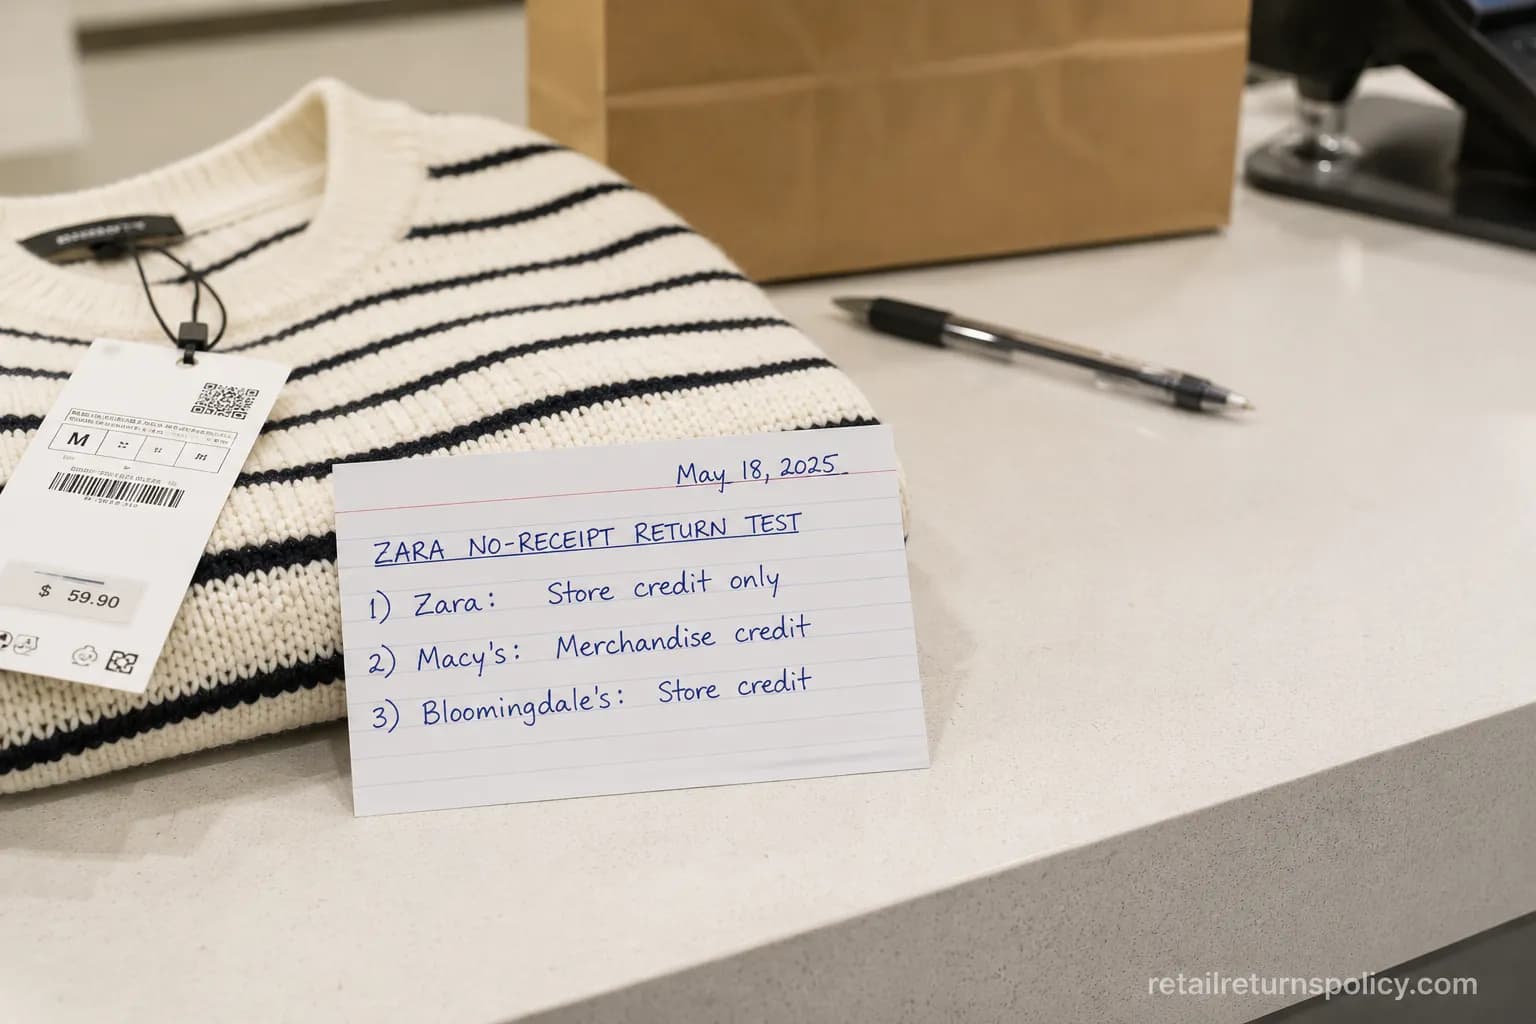 May 18, 2025
ZARA NO-RECEIPT RETURN TEST
1) Zara: Store credit only
2) Macy's: Merchandise credit
3) Bloomingdale's: Store credit
M
$ 59.90
retailreturnspolicy.com